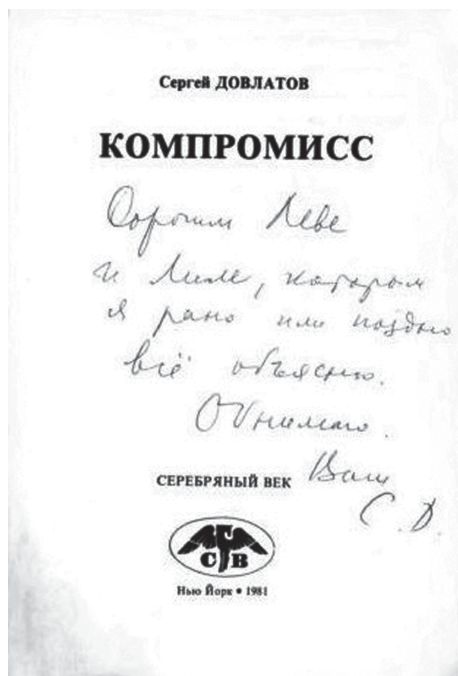 Сергей ДОВЛАТОВ
КОМПРОМИСС
Дорогим Леве
и Лиле, которым
я рано или поздно
всё объясню.
Обнимаю.
Ваш
СЕРЕБРЯНЫЙ ВЕК
С. Д.
СВ
Нью Йорк • 1981